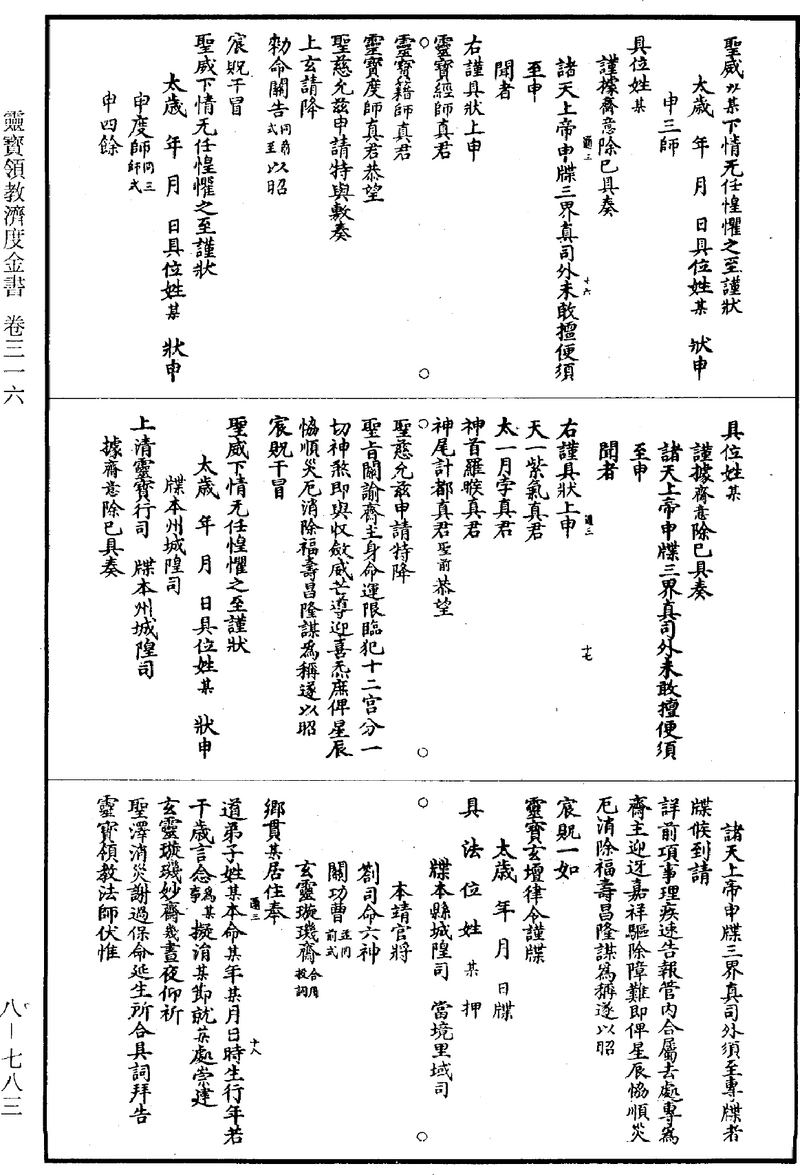 聖威少某下情无任惶懼之至謹狀
太歲　年　月　日具位姓某　狀申
申三師
具位姓某
謹據齋意除已具奏
諸天上帝申牒三界真司外未敢擅便須
至申
聞者
右謹具狀上申
靈寶經師真君
靈寶籍師真君
靈寶度師真君恭望
聖慈允茲申請特與敷奏
上玄請降
勑命關告同前式至以昭
宸貺干冒
聖威下情无任惶懼之至謹狀
太歲　年　月　日具位姓某　狀申
申度師同三師式
申四餘
通三
十六
具位姓某
謹據齋意除已具奏
諸天上帝申牒三界真司外未敢擅便須
至申
聞者
右謹具狀上申
天一紫氣真君
太一月孛真君
神首羅睺真君
神尾計都真君至前恭望
聖慈允茲申請特降
聖旨關諭齋主身命運限臨犯十二宮分一
切神煞即與收斂威芒導迎喜炁庶俾星辰
恊順災厄消除福壽昌隆謀為稱遂以昭
宸貺干冒
聖威下情无任惶懼之至謹狀
太歲　年　月　日具位姓某　狀申
牒本州城隍司
上清靈寶行司　牒本州城隍司
據齋意除已具奏
通三
十七
諸天上帝申牒三界真司外須至專牒者
牒候到請
詳前項事理疾速告報管內合屬去處專為
齋主迎迓嘉祥驅除障難即俾星辰恊順災
厄消除福壽昌隆謀為稱遂以昭
宸貺一如
靈寶玄壇律令謹牒
太歲　年　月　日牒
具　法　位　姓　某　押
牒本縣城隍司　當境里域司
本靖官將
劄司命六神
關功曹並同前式
玄靈璇璣齋合用投詞
鄉貫某居住奉
道弟子姓某本命某年某月日時生行年若
干歲言念為某事擬涓某節就某處崇建
玄靈璇璣妙齋幾晝夜仰祈
聖澤消災謝過保命延生所合具詞拜告
靈寶領教法師伏惟
通三
十八
靈寶領教濟度金書　卷三一六
八－七八三